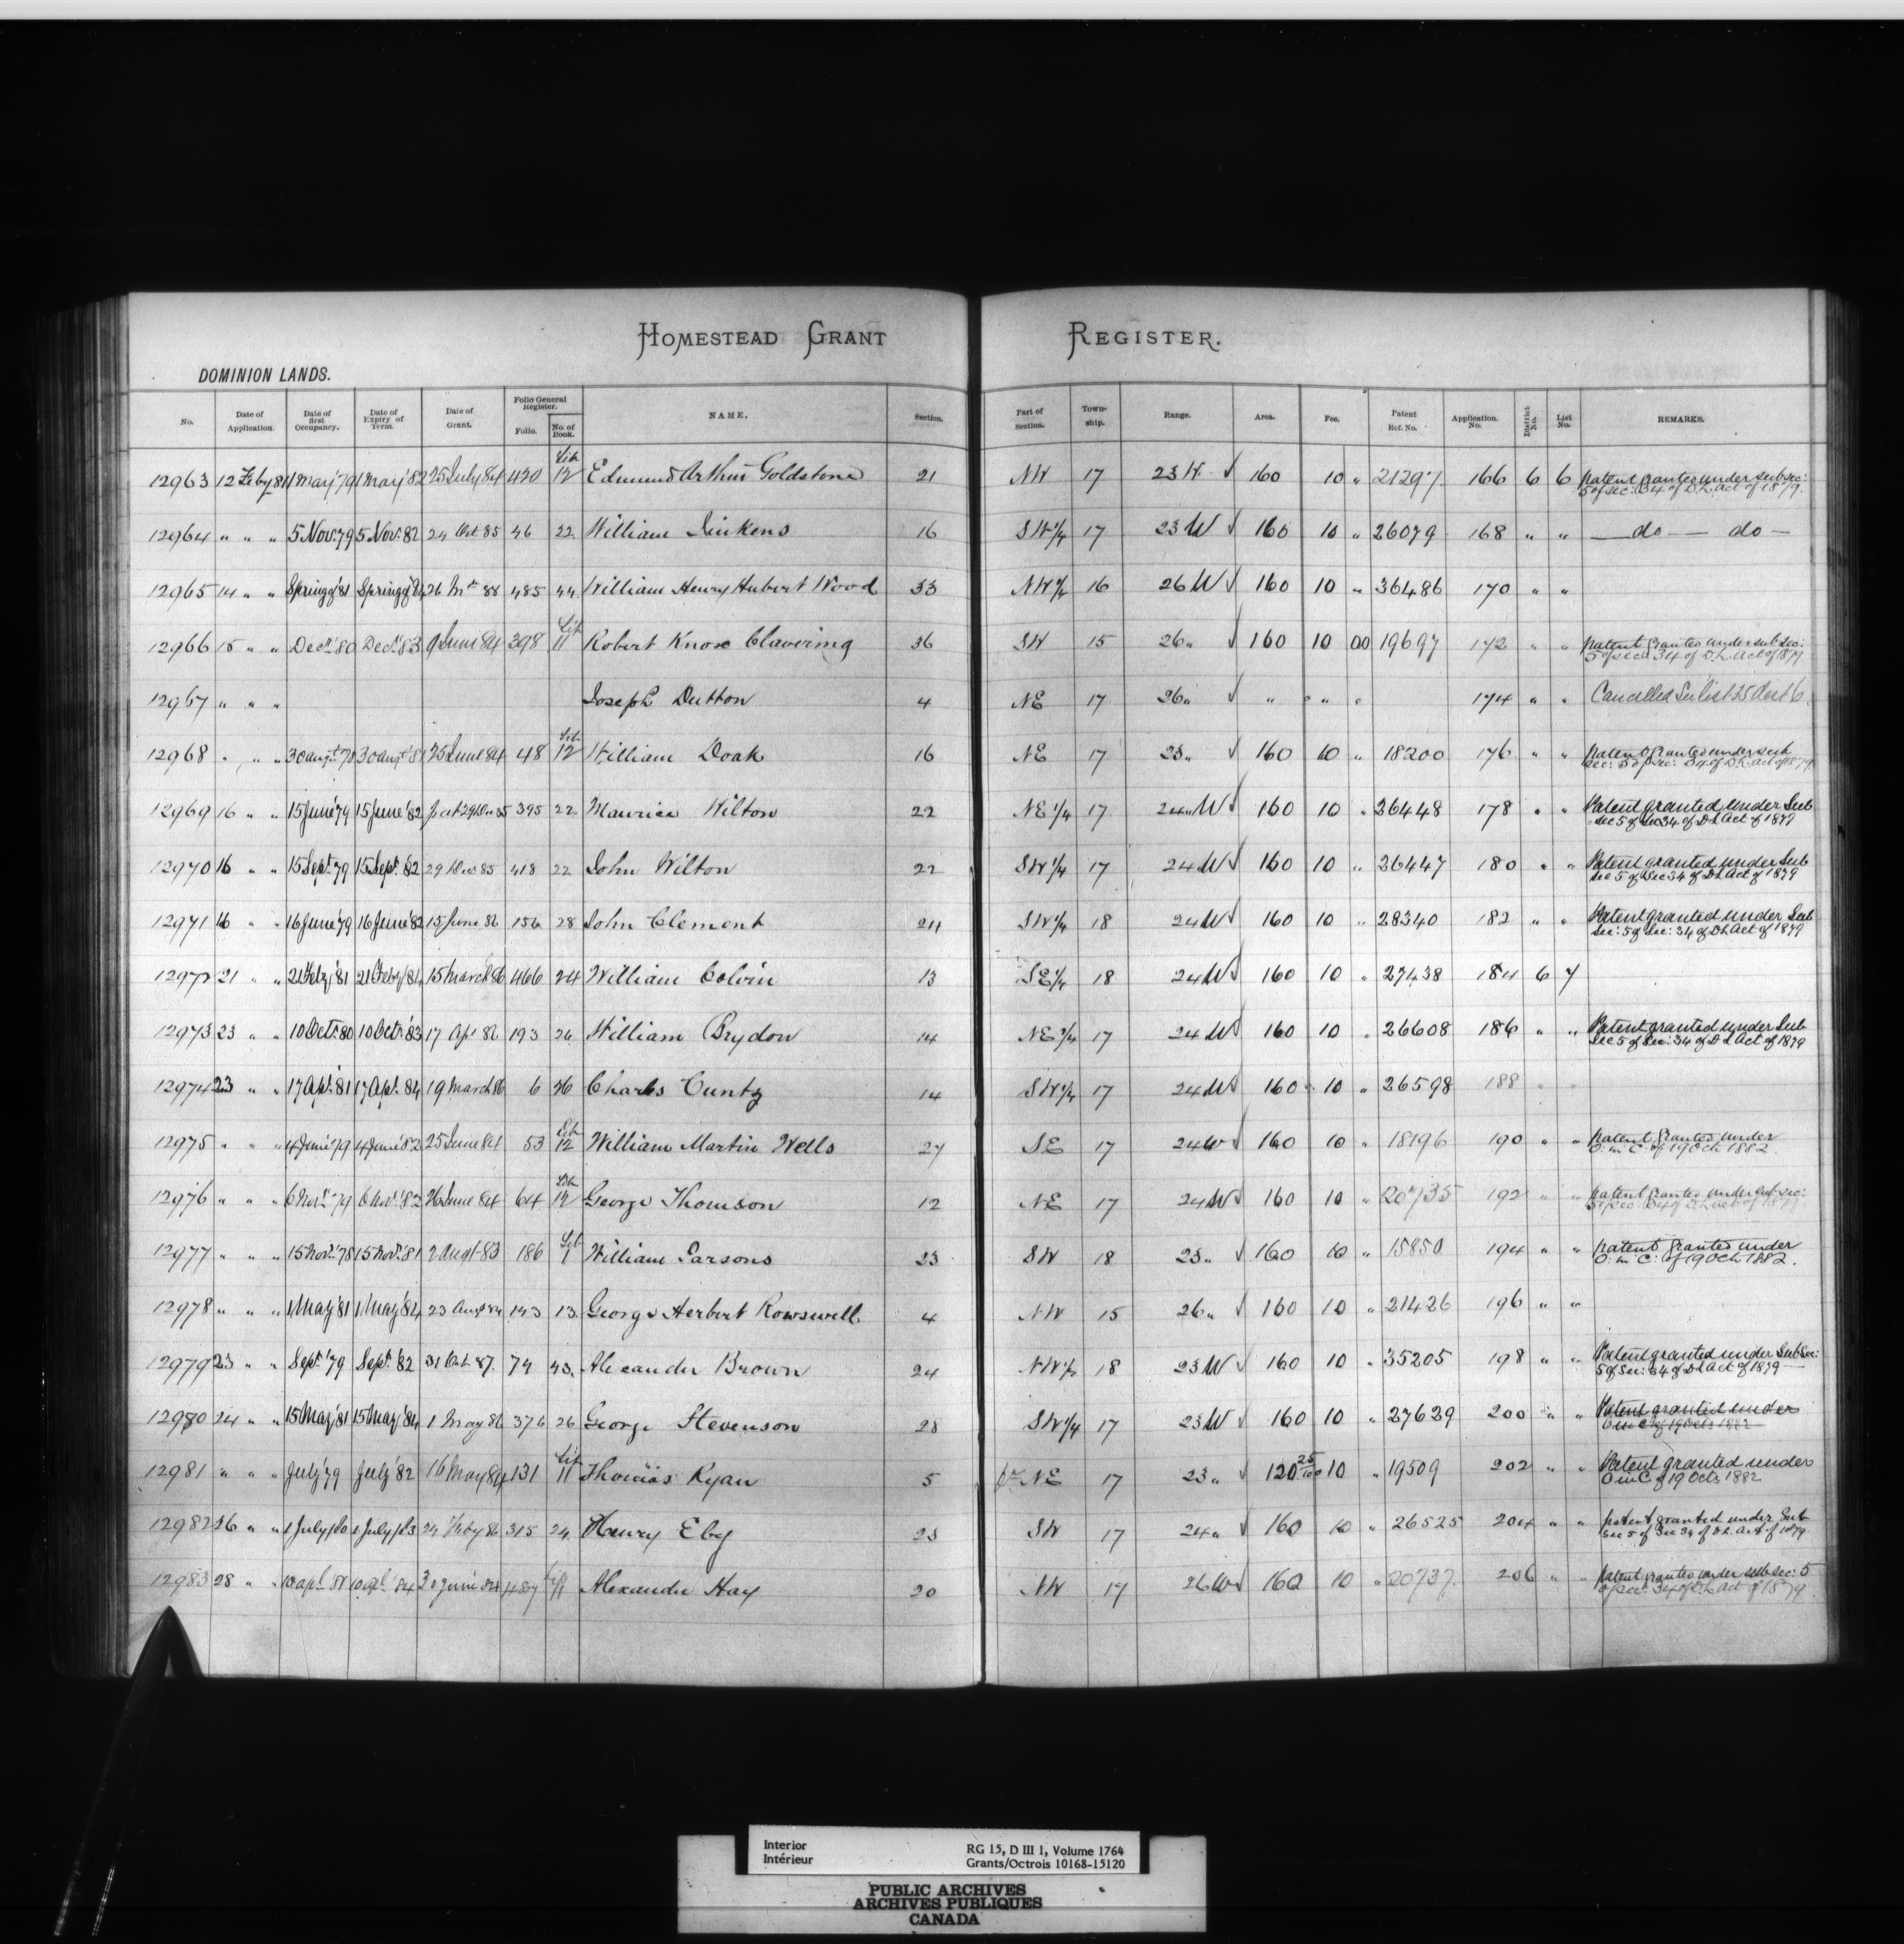 HOMESTEAD GRANT REGISTER.
DOMINION LANDS.
No. Date of Application. Date of first Occupancy. Date of Expiry of Term. Date of Grant. Folio General Register. Folio. No. of Book. NAME. Section. Part of Section. Town-ship. Range. Area. Fee. Patent Ref. No. Application. No. District No. List No. REMARKS.
12963 12 Feby 81 1 May '79 1 May '82 25 July 84 420 Lib 12 Edmund Arthur Goldstone 21 NW 17 23 W √ 160 10 " 21297 166 6 6 Patent granted under sub sec: 5 of sec: 34 of D.L. Act of 1879.
12964 " " " 5 Nov. 79 5 Nov. 82 24 Oct 85 46 22 William Jinkens 16 SW 1/4 17 23 W √ 160 10 " 26079 168 " " — do — do —
12965 14 " " Spring of '81 Spring of '84 26 88 485 44 William Henry Hubert Wood 33 NW 1/4 16 26 W √ 160 10 " 36486 170 " "
12966 15 " " Decr. '80 Decr. '83 9 June 84 398 Lib 11 Robert Knox Clavering 36 SW 15 26 " √ 160 10 00 19697 172 " " Patent granted under sub sec: 5 of sec: 34 of D.L. Act of 1879
12967 " " " Joseph Dutton 4 NE 17 26 " √ " " " " 174 " " Cancelled See list 25 Dist 6.
12968 " " " 30 augt 78 30 augt 81 25 June 84 48 Lib 12 William Doak 16 NE 17 23 " √ 160 10 " 18200 176 " " Patent granted under sub sec: 5 of sec: 34 of D.L. Act of 1879
12969 16 " " 15 June '79 15 June '82 29 Dec 85 395 22 Maurice Wilton 22 NE 1/4 17 24 W √ 160 10 " 26448 178 " " Patent granted under Sub Sec 5 of Sec 34 of D L Act of 1879
12970 16 " " 15 Sept. 79 15 Sept. 82 29 Dec 85 418 22 John Wilton 22 SW 1/4 17 24 W √ 160 10 " 26447 180 " " Patent granted under Sub Sec 5 of Sec 34 of D L Act of 1879
12971 16 " " 16 June '79 16 June '82 15 June 86 156 28 John Clement 24 SW 1/4 18 24 W √ 160 10 " 28340 182 " " Patent granted under Sub Sec: 5 of Sec: 34 of D L Act of 1879
12972 21 " " 21 Feby '81 21 Feby '84 15 March 86 466 24 William Colvin 13 SE 1/4 18 24 W √ 160 10 " 27438 184 6 7
12973 23 " " 10 Oct. 80 10 Oct. '83 17 Apr 86 193 26 William Brydon 14 NE 1/4 17 24 W √ 160 10 " 26608 186 " " Patent granted under Sub Sec 5 of Sec: 34 of D L Act of 1879
12974 23 " " 17 Apl. '81 17 Apl. 84 19 March 86 6 26 Charles Cuntz 14 SW 1/4 17 24 W √ 160 10 " 26598 188 " "
12975 " " " 4 June '79 4 June '82 25 June 84 53 Lib 12 William Martin Wells 27 SE 17 24 W √ 160 10 " 18196 190 " " Patent granted under O. in C. of 19 Oct 1882.
12976 " " " 6 Nov. '79 6 Nov. '82 26 June 84 64 Lib 12 George Thomson 12 NE 17 24 W √ 160 10 " 20735 192 " " Patent granted under sub sec: 5 of sec: 34 of D.L. Act of 1879
12977 " " " 15 Nov. '78 15 Nov. '81 2 Augt 83 186 Lib 1 William Parsons 23 SW 18 23 " √ 160 10 " 15850 194 " " Patent granted under O. in C. of 19 Oct 1882.
12978 " " " 1 May '81 1 May '84 23 Augt 84 143 13 George Herbert Rowswell 4 NW 15 26 " √ 160 10 " 21426 196 " "
12979 23 " " Sept. '79 Sept. '82 31 Oct. 87. 74 43. Alexander Brown 24 NW 1/4 18 23 W √ 160 10 " 35205 198 " " Patent granted under Sub Sec: 5 of Sec: 34 of D L Act of 1879 —
12980 24 " " 15 May '81 15 May '84 1 May 86 376 26 George Stevenson 28 SW 1/4 17 23 W √ 160 10 " 27629 200 " " Patent granted under O in C of 19 Oct 1882
12981 " " " July '79 July '82 16 May 84 131 Lib 11 Thomas Ryan 5 pt NE 17 23 " √ 120 25/100 10 " 19509 202 " " Patent granted under O in C of 19 Oct 1882
12982 26 " " 1 July /80 1 July /83 24 Feby 86 315 24 Henry Eby 23 SW 17 24 " √ 160 10 " 26525 204 " " patent granted under Sub Sec 5 of Sec 34 of D.L. Act of 1879
12983 28 " " 10 apl. 81 10 apl. 84 30 June 84 487 Lib 11 Alexander Hay 20 NW 17 26 W √ 160 10 " 20737 206 " " Patent granted under sub sec: 5 of sec: 34 of D.L. Act of 1879.
Interior
Intérieur
RG 15, D III 1, Volume 1764
Grants/Octrois 10168-15120
PUBLIC ARCHIVES
ARCHIVES PUBLIQUES
CANADA